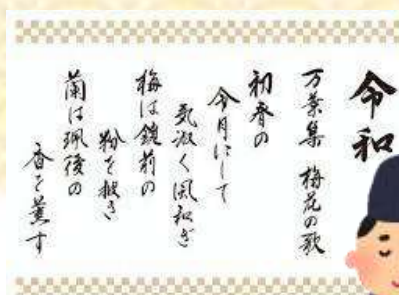 令和
万葉集 梅花の歌
初春の
令月にして
気淑く風和ぎ
梅は鏡前の
粉を披き
蘭は珮後の
香を薫す